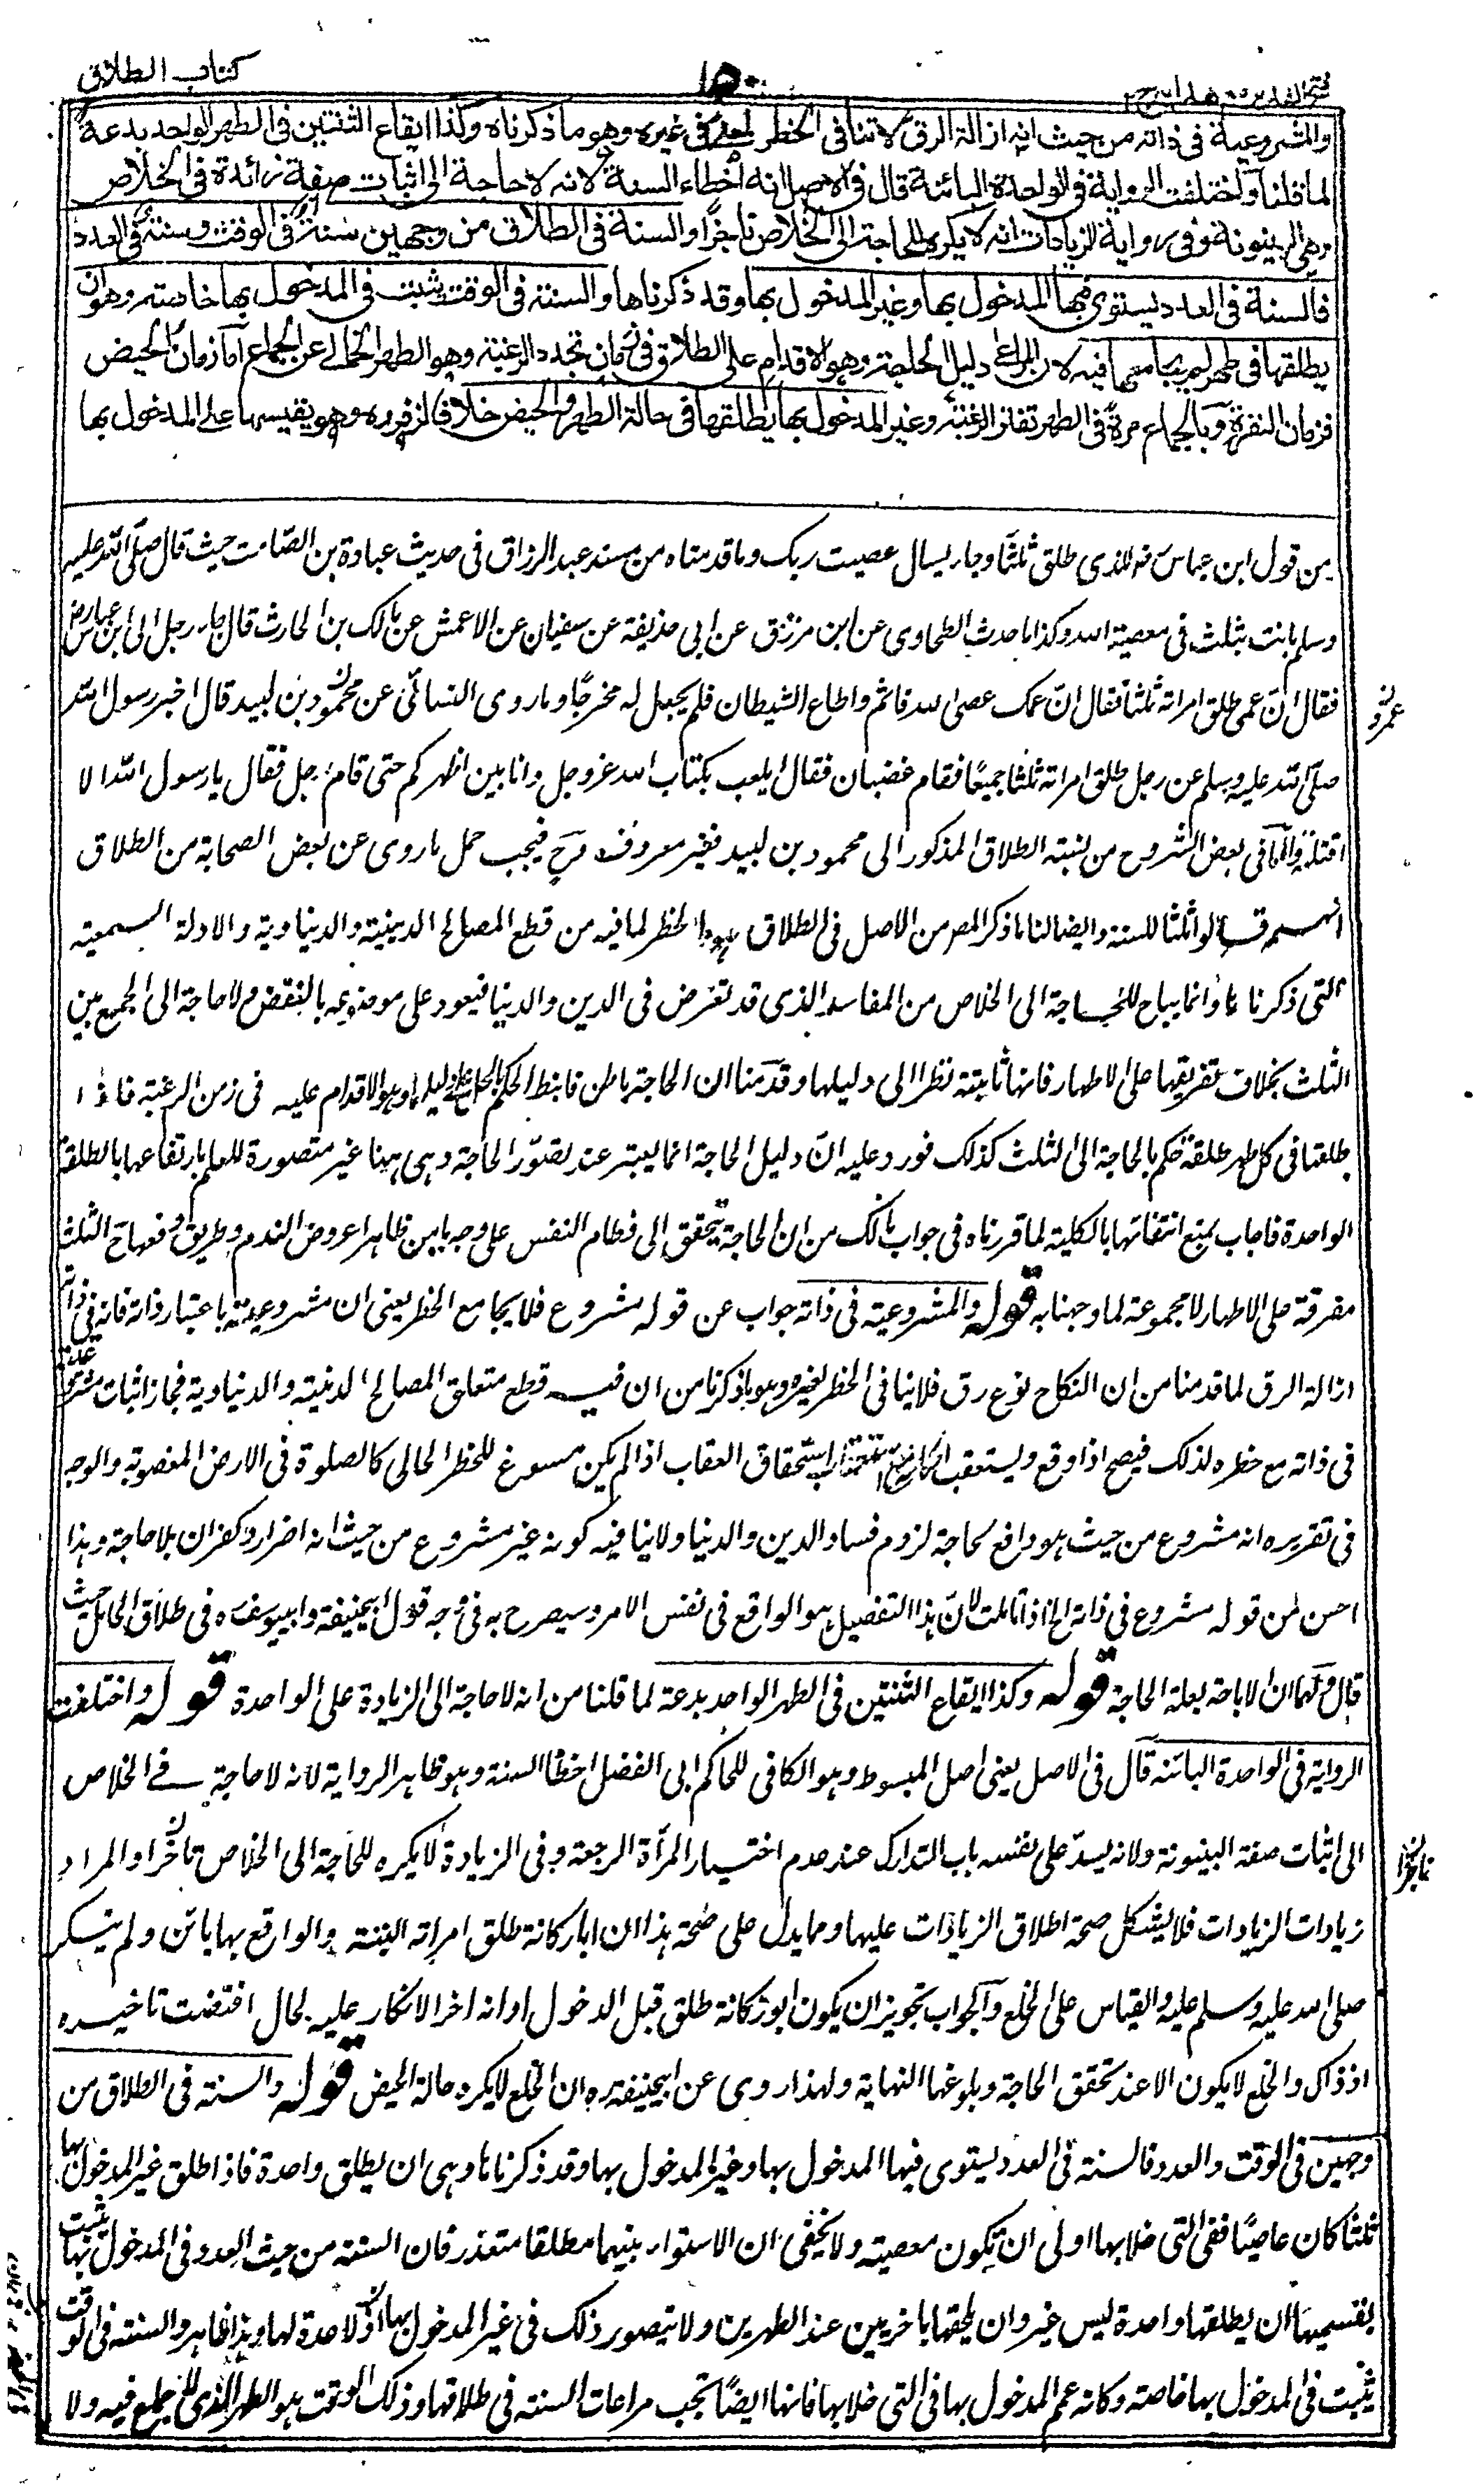 فتح القدير مع هداية ج ٢
١٥٠
كتاب الطلاق
والمشروعية في ذاته من حيث انه ازالة الرق لا تنافي الحظر لمعنى في غيره وهو ما ذكرناه وكذا ايقاع الثنتين في الطهر الواحد بدعة
لما قلنا واختلفت الرواية في الواحدة البائنة قال في الاصل انه اخطاء السنة لانه لا حاجة الى اثبات صفة زائدة في الخلاص
وهي البينونة وفي رواية الزيادات انه لا يكره للحاجة الى الخلاص ناجزًا والسنة في الطلاق من وجهين سنة في الوقت وسنة في العدد
فالسنة في العدد يستوى فيها المدخول بها وغير المدخول بها وقد ذكرناها والسنة في الوقت يثبت في المدخول بها خاصة وهو ان
يطلقها في طهر لم يجامعها فيه لان المراعى دليل الحاجة وهو الاقدام على الطلاق في زمان تجدد الرغبة وهو الطهر الخالي عن الجماع اما زمان الحيض
فزمان النفرة وبالجماع مرة في الطهر تفتر الرغبة وغير المدخول بها يطلقها في حالة الطهر والحيض خلافا لزفر ره وهو يقيسها على المدخول بها
من قول ابن عباس رضـ للذى طلق ثلثًا وجاء يسال عصيت ربك وما قدمناه من مسند عبد الرزاق في حديث عبادة بن الصامت حيث قال صلى الله عليه
وسلم بانت بثلث في معصية الله وكذا ما حدث الطحاوى عن ابن مرزوق عن ابي حذيفة عن سفيان عن الاعمش عن مالك بن الحارث قال جاء رجل الى ابن عباس رضـ
فقال ان عمى طلق امراته ثلثا فقال ان عمك عصى الله فاثم واطاع الشيطان فلم يجعل له مخرجًا وما روى النسائى عن محمود بن لبيد قال اخبر رسول الله
صلى الله عليه وسلم عن رجل طلق امراته ثلثا جميعًا فقام غضبان فقال ايلعب بكتاب الله عز وجل وانا بين اظهركم حتى قام رجل فقال يا رسول الله الا
اقتله واما في بعض الشروح من نسبة الطلاق المذكور الى محمود بن لبيد فغير معروف فيجب حمل ما روى عن بعض الصحابة من الطلاق
انهم قالوا ثلثا للسنة وايضا لنا ما ذكر المصر من الاصل في الطلاق هو الحظر لما فيه من قطع المصالح الدينية والدنياوية والادلة السمعية
التى ذكرناها وانما يباح للحاجة الى الخلاص من المفاسد الذى قد تعرض في الدين والدنيا فيعود على موضوعه بالنقض ولا حاجة الى الجمع بين
الثلث بخلاف تفريقها على الاطهار فانها ثابتة نظرا الى دليلها وقدمنا ان الحاجة باطن فانيط الحكم بالحاجة على دليلها وهو الاقدام عليه في زمن الرغبة فاذا
طلقها في كل طهر طلقة حكم بالحاجة الى الثلث كذلك فورد عليه ان دليل الحاجة انما يعتبر عند تصور الحاجة وهى هنا غير متصورة للعلم بارتفاعها بالطلقة
الواحدة فاجاب بمنع انتفائها بالكلية لما قررناه في جواب مالك من ان الحاجة تتحقق الى فطام النفس على وجه يامن ظاهرا عروض الندم وطريق دفعها ح الثلث
مفرقة على الاطهار لا مجموعة لما وجهنا به قوله والمشروعية في ذاته جواب عن قوله مشروع فلا يجامع الحظر يعنى ان مشروعيته باعتبار ذاته فانه في ذاته
ازالة الرق لما قدمنا من ان النكاح نوع رق فلا ينافى الحظر لغيره وهو ما ذكرنا من ان فيه قطع متعلق المصالح الدينية والدنياوية فجاز اثبات مشروعيته
في ذاته مع حظره لذلك فيصح اذا وقع ويستعقب احكامه مع استحقاق العقاب اذا لم يكن مسوغ للحظر الحالى كالصلوة في الارض المغصوبة والوجه
في تقريره انه مشروع من حيث هو دافع لحاجة لزوم فساد الدين والدنيا ولا ينافيه كونه غير مشروع من حيث انه اضرار وكفران بلا حاجة وهذا
احسن من قوله مشروع في ذاته الخ اذا تاملت لان هذا التفصيل هو الواقع في نفس الامر وسيصرح به في وجه قول ابيحنيفة وابييوسف ره في طلاق الحامل حيث
قال ولهما ان الاباحة بعلة الحاجة قوله وكذا ايقاع الثنتين في الطهر الواحد بدعة لما قلنا من انه لا حاجة الى الزيادة على الواحدة قوله واختلفت
الرواية في الواحدة البائنة قال في الاصل يعنى اصل المبسوط وهو الكافى للحاكم ابى الفضل اخطأ السنة وهو ظاهر الرواية لانه لا حاجة في الخلاص
الى اثبات صفة البينونة ولانه يسد على نفسه باب التدارك عند عدم اختيار المرأة الرجعة وفى الزيادة لا يكره للحاجة الى الخلاص تاخرا والمراد
زيادات الزيادات فلا يشكل صحة اطلاق الزيادات عليها ومما يدل على صحة هذا ان ابا ركانة طلق امراته البتة والواقع بها بائن ولم ينكر
صلى الله عليه وسلم عليه والقياس على الخلع والجواب تجويز ان يكون ابو ركانة طلق قبل الدخول او انه اخر الانكار عليه لحال اقتضت تاخيره
اذ ذاك والخلع لا يكون الا عند تحقق الحاجة وبلوغها النهاية ولهذا روى عن ابيحنيفة ره ان الخلع لا يكره حالة الحيض قوله والسنة في الطلاق من
وجهين في الوقت والعدد فالسنة في العدد يستوى فيها المدخول بها وغير المدخول بها وقد ذكرناها وهى ان يطلق واحدة فاذا طلق غير المدخول بها
ثلثا كان عاصيًا ففى التى خلا بها اولى ان يكون معصية ولا يخفى ان الاستواء بينهما مطلقا متعذر فان السنة من حيث العدد في المدخول بها يثبت
بقسميها ان يطلقها واحدة ليس غير وان يلحقها باخريين عند الطهرين ولا يتصور ذلك في غير المدخول بها اذ لا عدة لها وهذا ظاهر والسنة في الوقت
يثبت في المدخول بها خاصة وكانه عمم المدخول بها في التى خلا بها فانها ايضًا تجب مراعات السنة في طلاقها وذلك الوقت هو الطهر الذى لا جماع فيه ولا